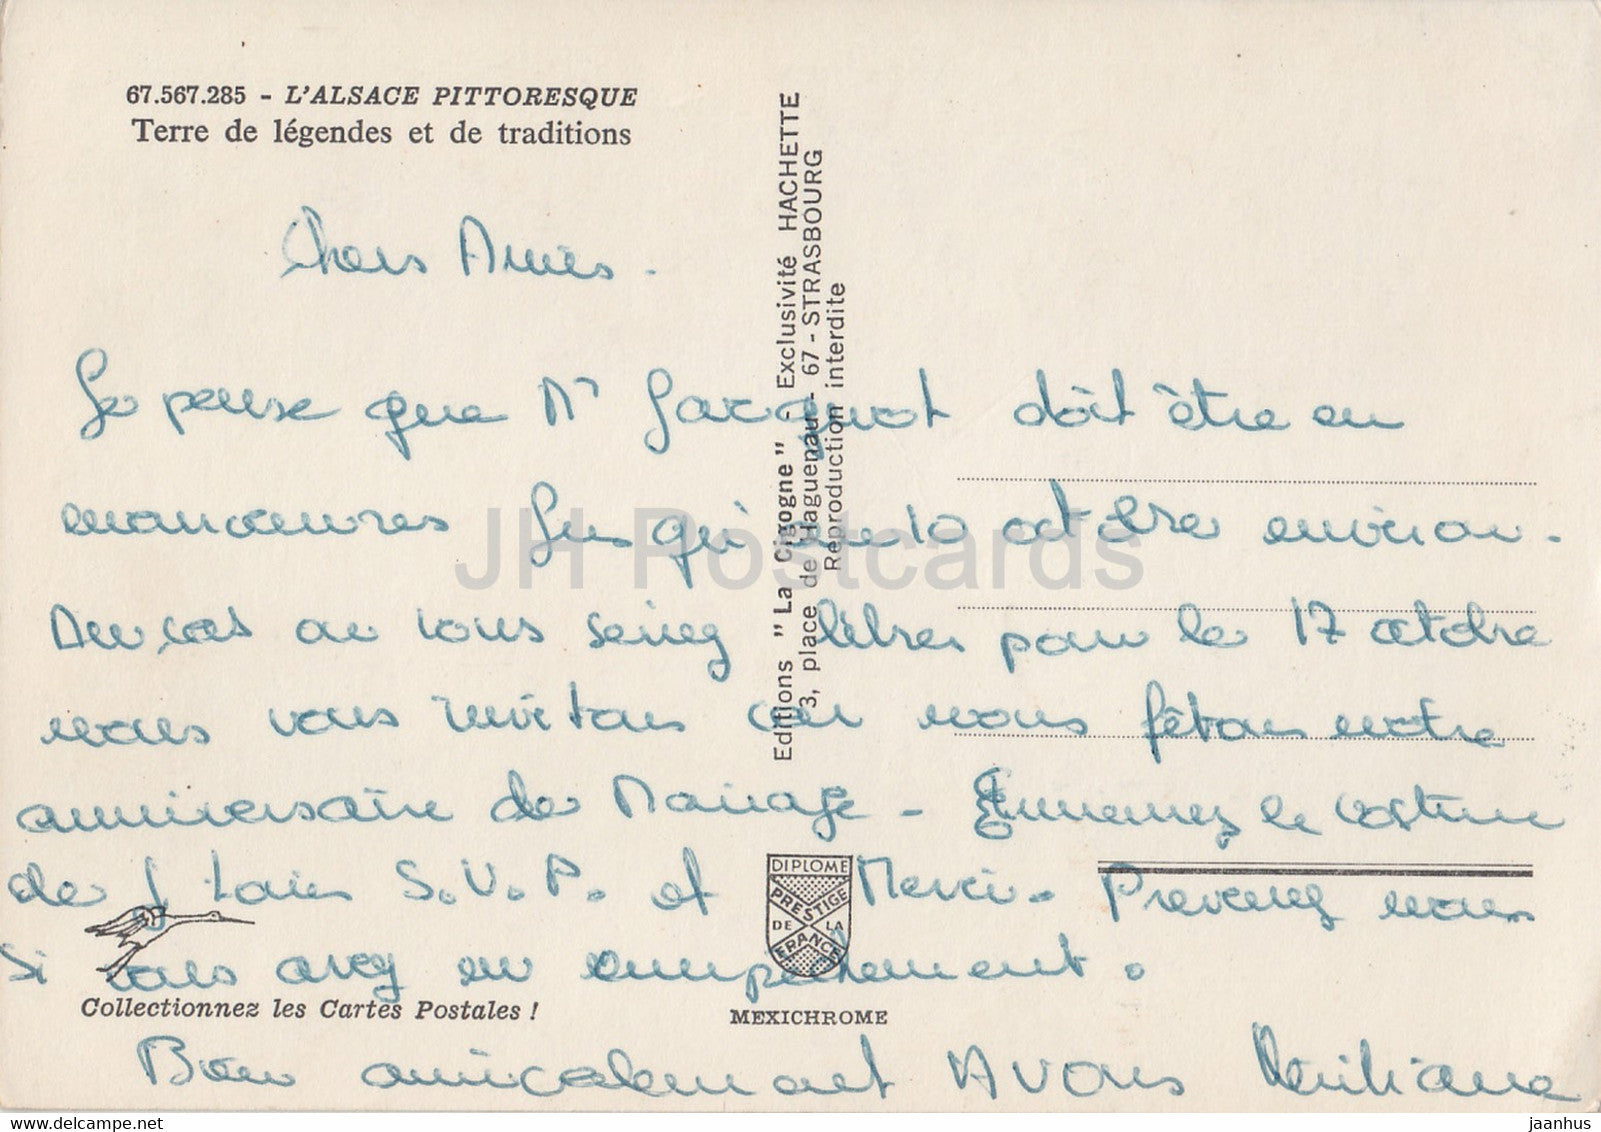 67.567.285 - L'ALSACE PITTORESQUE
Terre de légendes et de traditions
Chers Amis.
Je pense que Mr Jacquot doit être en
manoeuvres Jusqu'au 10 octobre environ.
Au cas ou vous seriez libres pour le 17 octobre
nous vous invitons car nous fêtons notre
anniversaire de Mariage - Emmenez le costume
de S.V.P. et Merci. Prevenez nous
Si vous avez un empêchement.
Bon amicalement A Vous
Editions "La Cigogne" - Exclusivité HACHETTE
3, place de Haguenau - 67 - STRASBOURG
Reproduction interdite
DIPLOME
PRESTIGE
DE LA
FRANCE
Collectionnez les Cartes Postales !
MEXICHROME
JH Postcards
www.delcampe.net
jaanhus